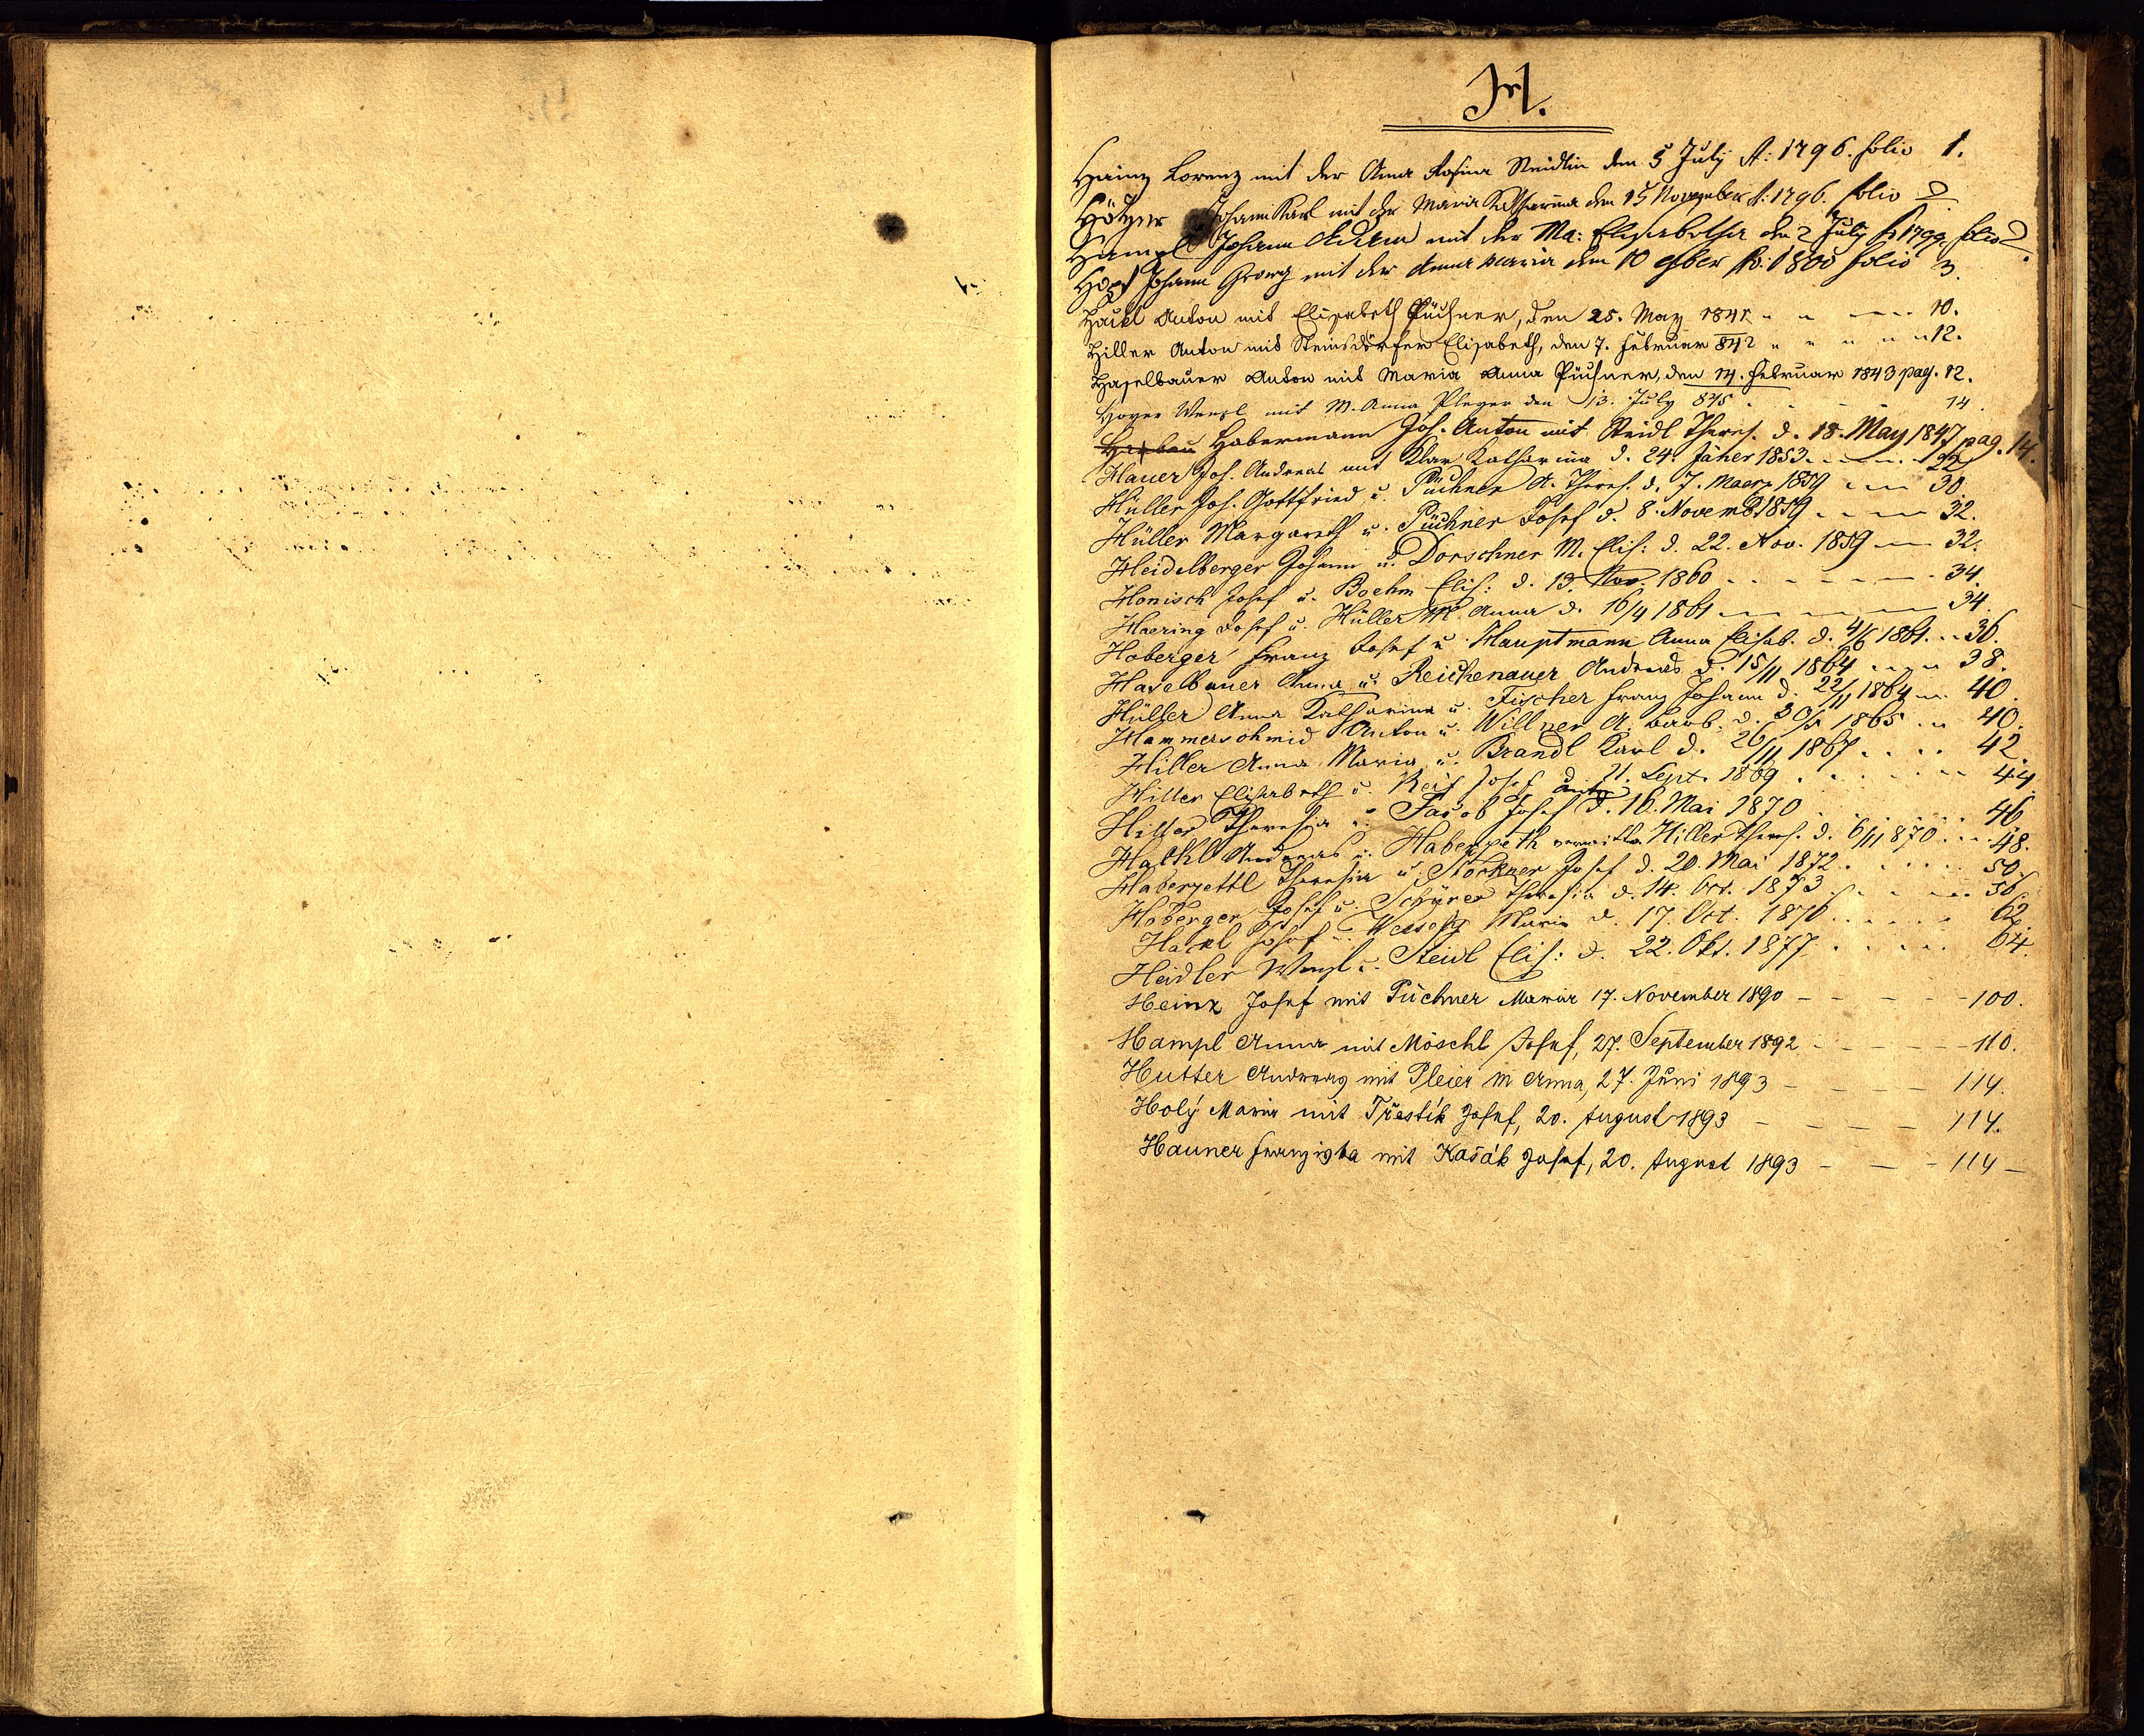 H.
Heinz Lorenz mit der Anna Rosina Steidlin den 5 July A: 1796. folio 1.
Hötzer Johann Karl mit der Maria Katharina den 15 November A: 1796. folio 2
Hampl Johann Adam mit der Ma: Elisabetha den 2 July A 1799. folio 2.
Hopf Johann Georg mit der Anna Maria den 10 Ao: 1800 folio 3.
Hackl Anton mit Elisabeth Püchner, den 25. May 1841 " " 10.
Hiller Anton mit Steinsdörfer Elisabeth, den 7. Februar 842 " " " " 12.
Haselbauer Anton mit Maria Anna Püchner, den 14. Februar 1843 pag. 12.
Hoyer Wenzl mit M. Anna Pleyer den 13. July 845 - - - - 14.
Habermann Joh. Anton mit Steidl Theres. d. 18. May 1847 pag. 14.
Hauer Joh. Andreas mit Klar Katharina d. 24. Jäner 1853. 22
Hüller Joh. Gottfried u. Püchner A. Theres. d. 7. Maerz 1859 30
Hüller Margareth u. Püchner Josef d. 8. Novemb 1859 32.
Heidelberger Johann u. Dorschner M. Elis: d. 22. Nov. 1859 32.
Honisch Josef u. Boehm Elis: d. 13. Nov. 1860 34.
Haering Josef u. Hüller M. Anna d. 16/4 1861 34.
Hoberger Franz Josef u. Hauptmann Anna Elisab. d. 4/6 1861. 36.
Haselbauer Anna u. Reichenauer Andreas d. 15/11 1864 38.
Hüller Anna Katharina u. Fischer Franz Johann d. 22/11 1864 40.
Hammerschmid Anton u. Willner A. Barb. d. 30/5 1865 40.
Hiller Anna Maria u. Brandl Karl d. 26/11 1867 42.
Hiller Elisabeth u. Reif Josef d. 21. Sept. 1869 44.
Hiller Theresia u. Jacob Josef d. 16. Mai 1870 46
Hackl Andreas u. Haberzeth Hiller Theres. d. 6/11 870 48.
Haberzettl Theresia u. Stöckner Josef d. 20. Mai 1872. 50.
Hoberger Josef u. Theresia d. 14. Oct. 1873 56
Hackl Josef u. Maria d. 17. Oct. 1876 62.
Heidler Wenzl u. Steidl Elis: d. 22. Okt. 1877 64.
Heinz Josef mit Püchner Maria 17. November 1890 - - - - 100.
Hampl Anna mit Möschl Josef, 27. September 1892 - - - - 110.
Hutter Andreas mit Pleier M Anna, 27. Juni 1893 - - - - 114.
Holý Maria mit Třestík Josef, 20. August 1893 - - - - 114.
Hauner Franziska mit Kašák Josef, 20. August 1893 - - - 114 -